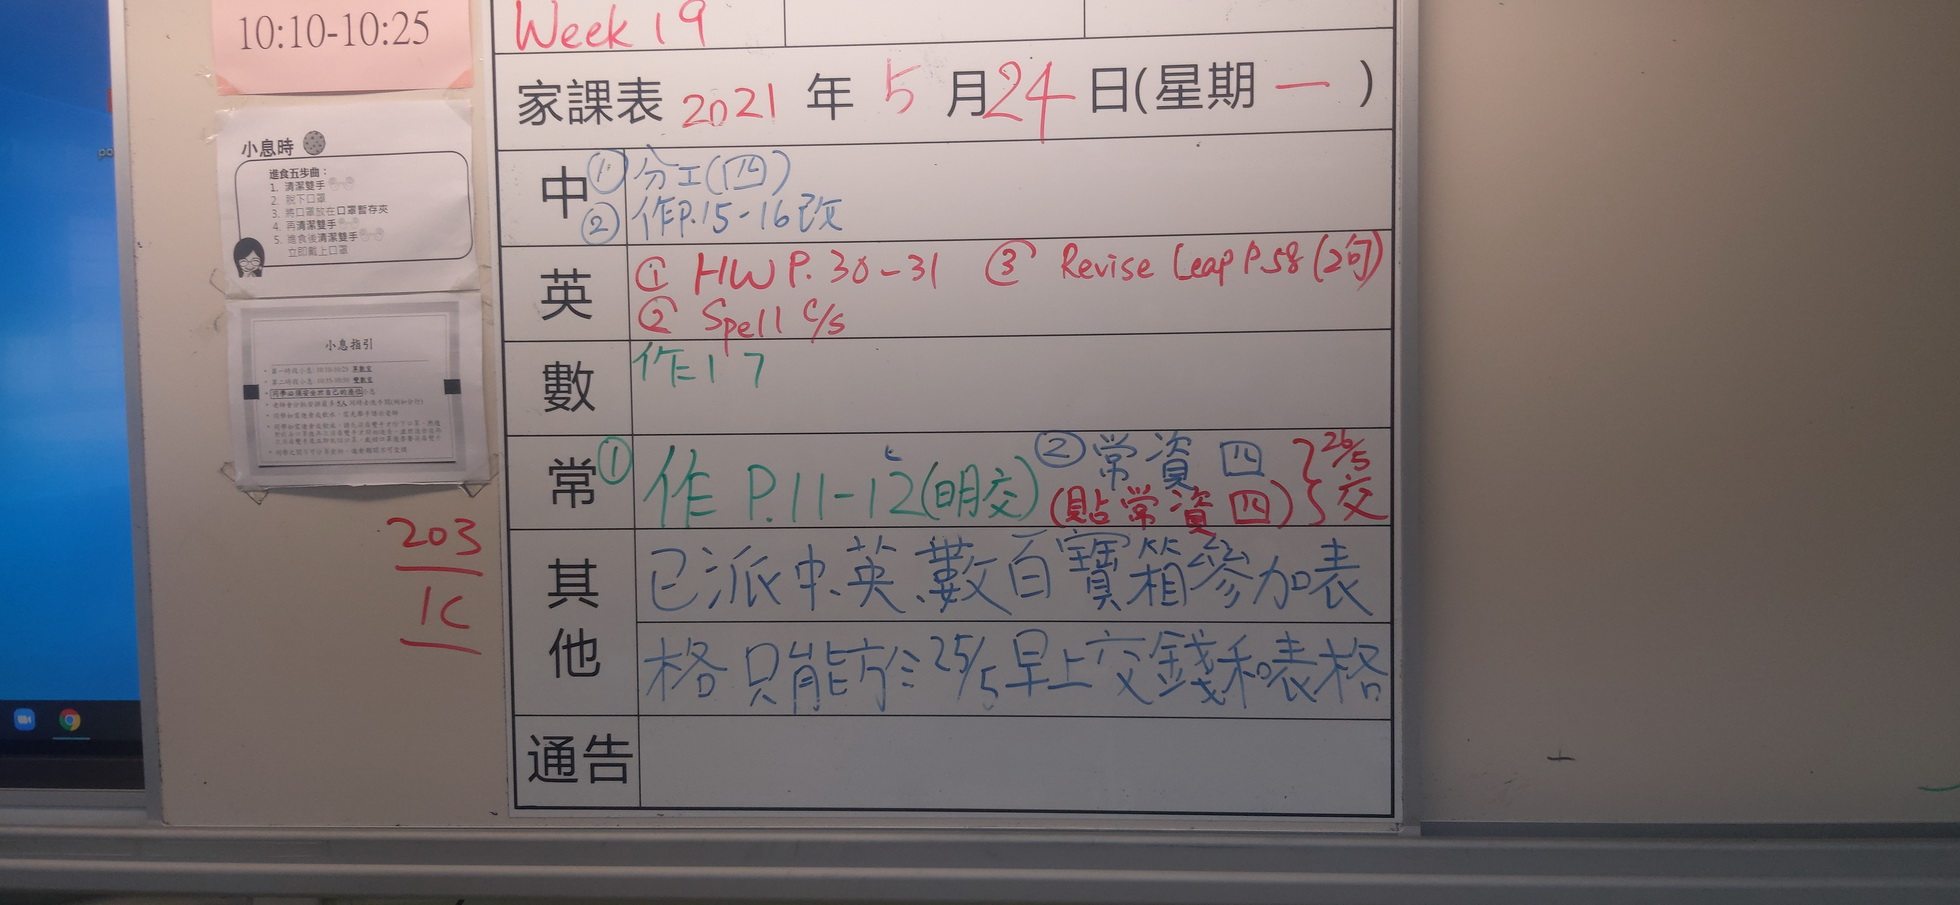 10:10-10:25
小息時
進食五步曲：
1. 清潔雙手
2. 脫下口罩
3. 將口罩放在口罩暫存夾
4. 再清潔雙手
5. 進食後清潔雙手
立即戴上口罩
小息指引
203
1C
Week 19
家課表 2021 年 5 月 24 日(星期 一 )
中 ① 分工(四)
② 作P.15-16改
英 ① HW P. 30-31 ③ Revise Leap P.58 (2句)
② Spell C/S
數 作 17
常 ① 作 P.11-12(明交) ② 常資 四
(貼常資四) } 26/5 交
其他 已派中、英、數百寶箱參加表
格只能於25/5早上交錢和表格
通告